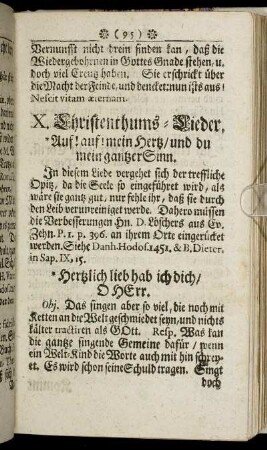 (95)
Vernunfft nicht drein finden kan, daß die
Wiedergebohrnen in Gottes Gnade stehen, u.
doch viel Creutz haben. Sie erschrickt über
die Macht der Feinde, und dencket: nun ists aus!
Nescit vitam æternam.
X. Christenthums-Lieder.
*Auf! auf! mein Hertz/ und du
mein gantzer Sinn.
In diesem Liede vergehet sich der treffliche
Opitz, da die Seele so eingeführet wird, als
wäre sie gantz gut, nur fehle ihr, daß sie durch
den Leib verunreiniget werde. Dahero müssen
die Verbesserungen Hn. D. Löschers aus Ev.
Zehn. P. 1. p. 396. an ihrem Orte eingerücket
werden. Sieh: Danh. Hodos. 1451. & B. Dieter.
in Sap. IX, 15.
*Hertzlich lieb hab ich dich/
O HErr.
Obj. Das singen aber so viel, die noch mit
Ketten an die Welt geschmiedet seyn, und nichts
kälter tractiren als GOtt. Resp. Was kan
die gantze singende Gemeine dafür/ wenn
ein Welt-Kind die Worte auch mit hin schrey-
et. Es wird schon seine Schuld tragen. Singt
doch